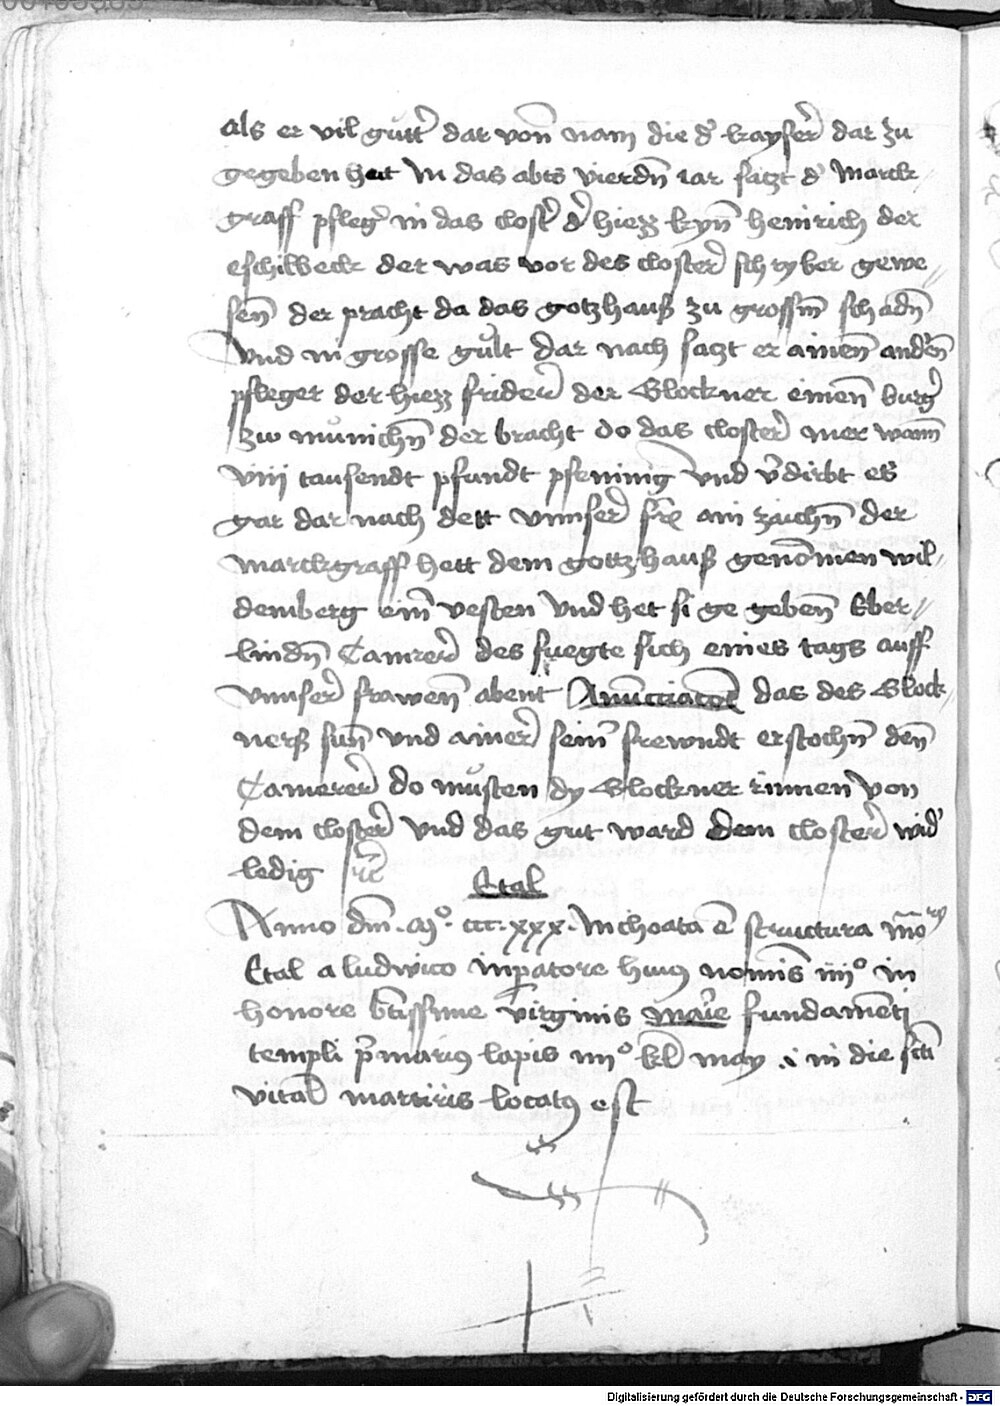 als er vil gůtt̉ dar vonn̄ nam die d̉ kayser̉ dar zu
gegeben hat In das abts vierdn̄ iar satzt d̉ Marck-
graff pfleg̉ in das clost̉ d̉ hiezz kyn̄ heinrich der
eschilbeck der was vor des closter̉ schryber gewe-
sen̄ der pracht da das gotzhauß zu grossm̄ schadn̄
Vnd in grosse gůlt dar nach satzt er ainen̄ anděn̄
pfleger der hiezz frider̉ der Glockner einen̄ burg̉
zw můnichn̄ der bracht do das closter̉ mer wann̄
viiij tausendt pfundt pfenining vnd v̉dirbt es
gar dar nach dett vnnser̉ fr̄ ain zaichn̄ der
marckgraff hett dem gottzhauß genōmen wil-
demberg ein̄ vesten vnd het si ge geben̄ Eber-
lindn̄ Camrer̉ des fuegte sich eines tags auff
vnnser̉ frawen̄ abent Anūcciacōē das des Glock-
nerß sun̄ vnd ainer̉ sein̄ frewndt erstochn̄ den̄
Camerer̉ do můsten dy Glockner rinnen von
dem closter̉ vnd das gut ward dem closter̉ wid̉
ledig
Etal
Anno dm̄. M°. ccc. xxx. Inchoata ē structura mōrij
Etal a ludwico inꝑatore huiꝯ nomīs iiij° in
honore btīssime virginis marie fundamēti
templi p̄mariꝯ lapis iiij° kl̄ may .i in die scti
vital̄ martiris locatꝯ est
Digitalisierung gefördert durch die Deutsche Forschungsgemeinschaft - DFG